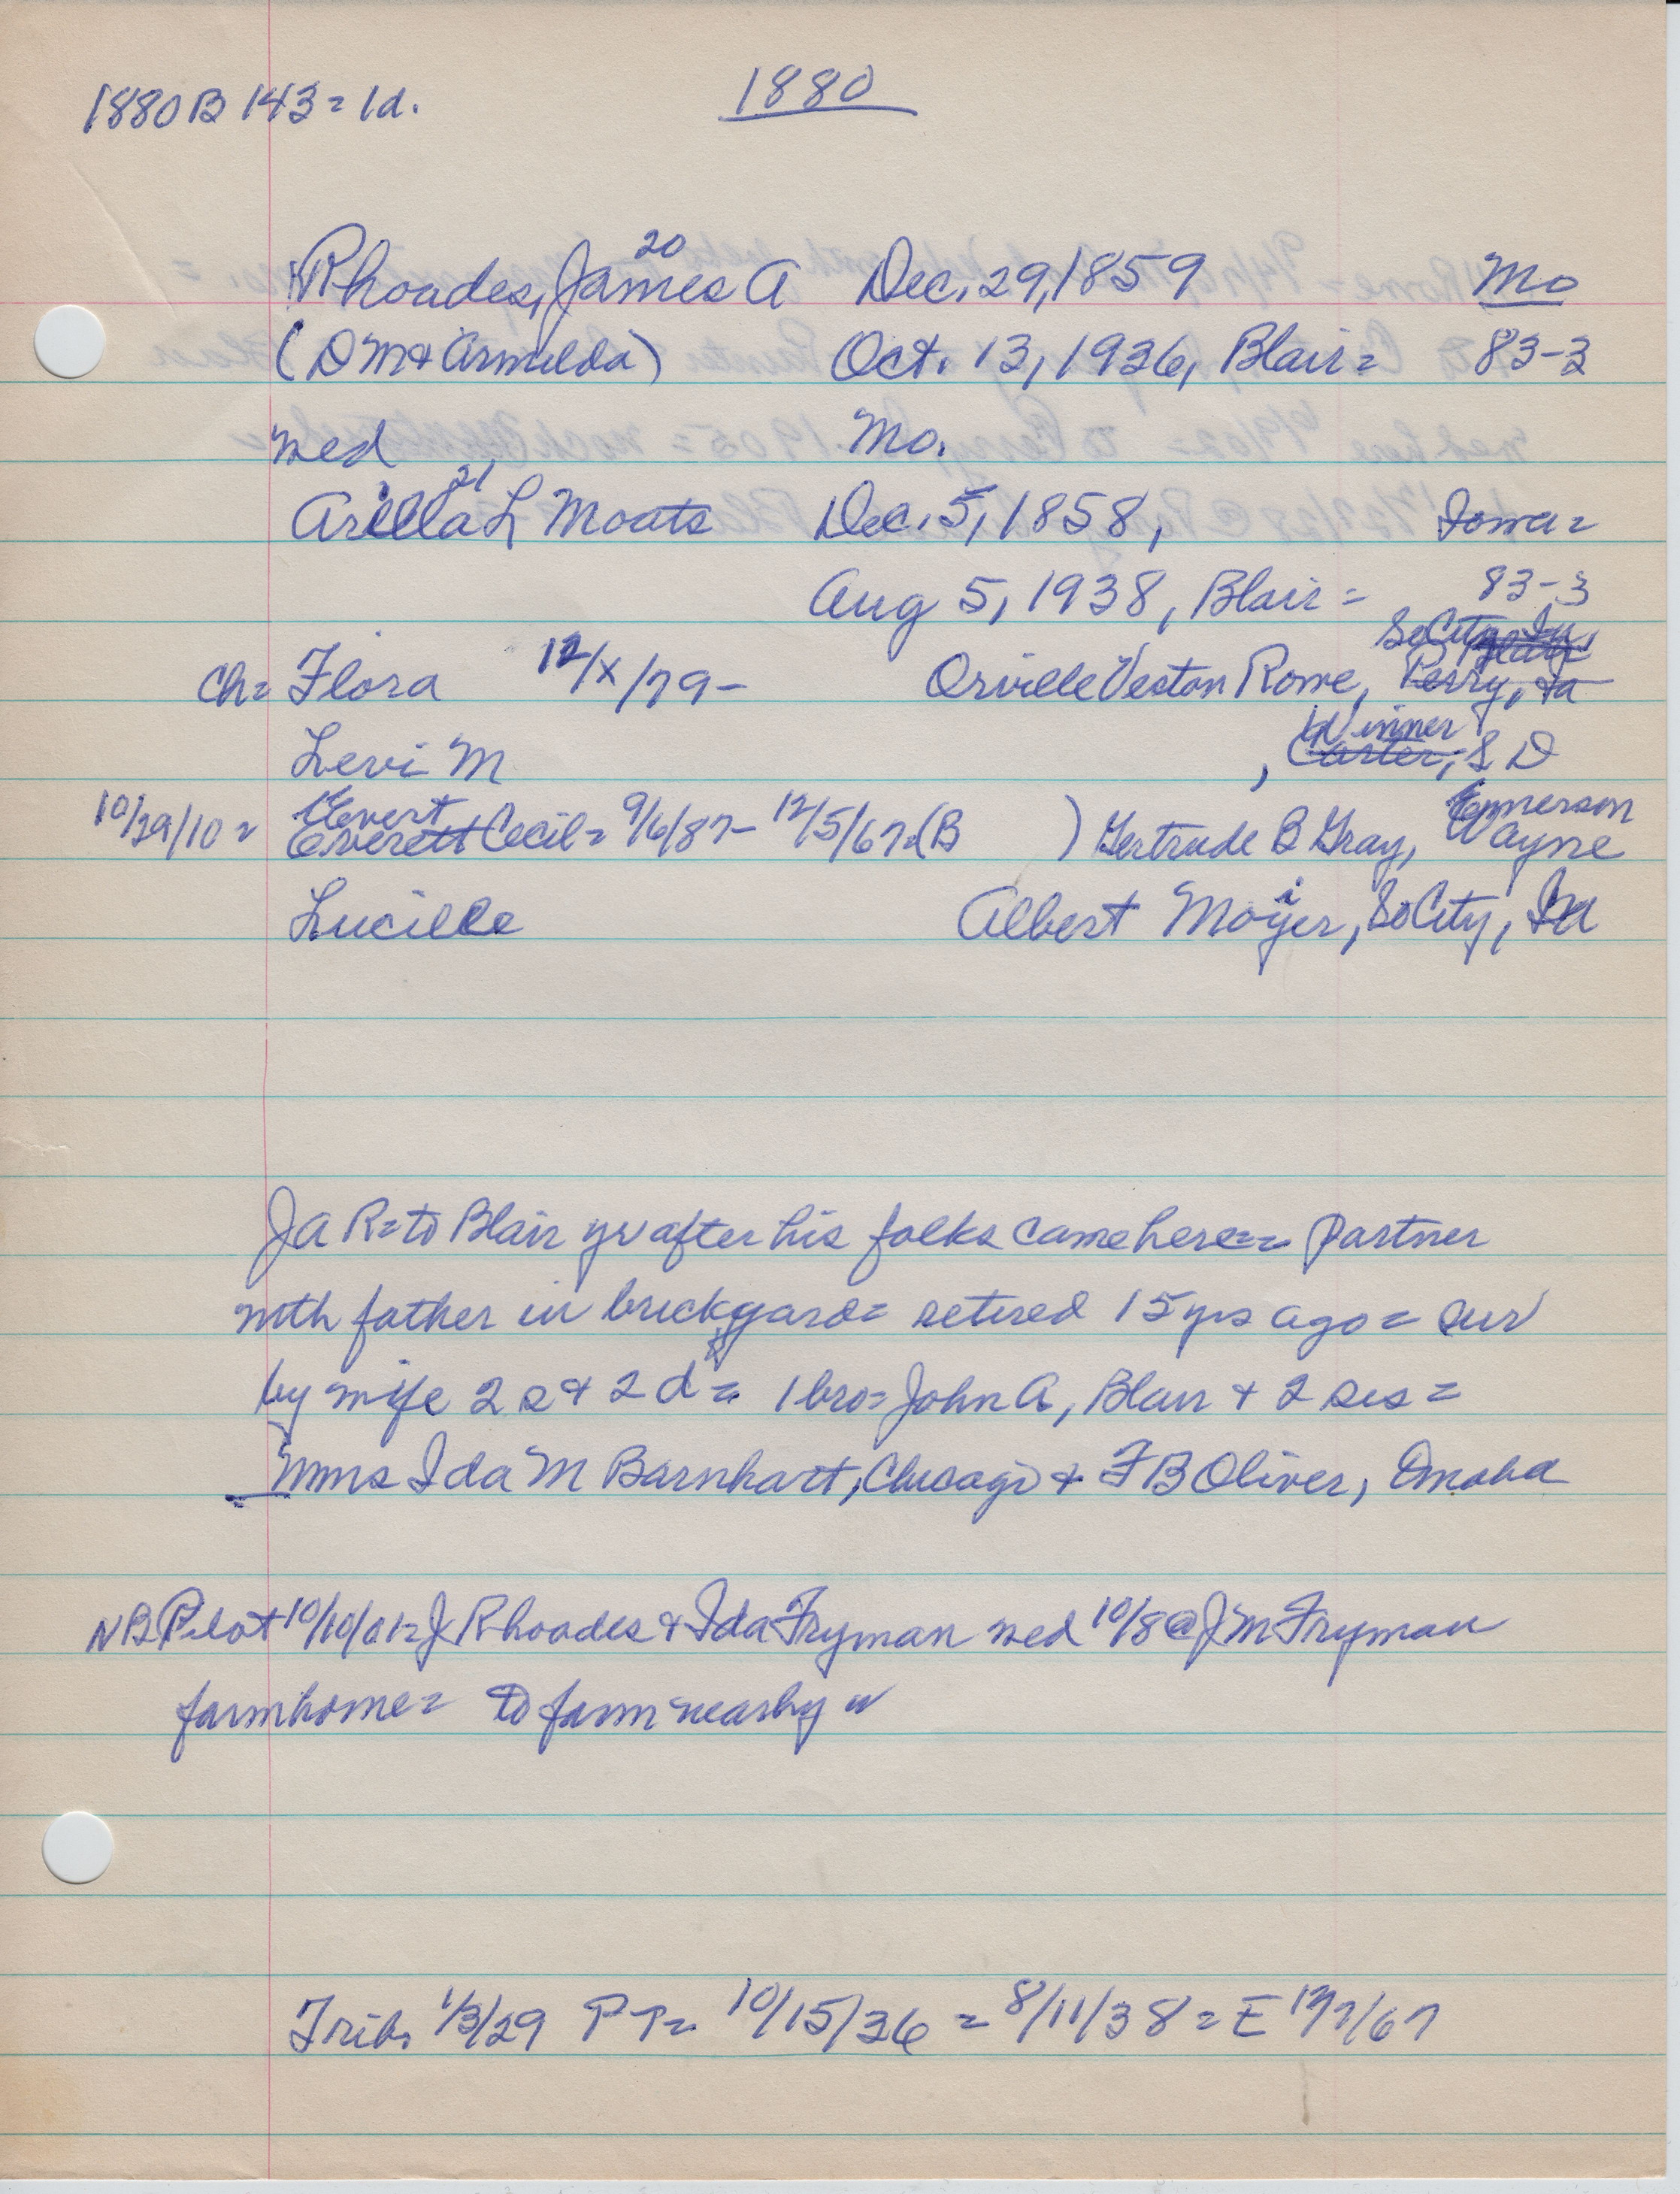 1880
1880 B 143 = 1d.
20
Rhoades, James A Dec. 29, 1859 Mo
(D M & Armilda) Oct. 13, 1936, Blair = 83-3
wed Mo.
21
Arilla L Moats Dec. 5, 1858, Iowa =
Aug 5, 1938, Blair = 83-3
So City, Ia,
Ch = Flora 12/X/79 - Orville Veston Rowe, Perry, Ia
Winner
Levi M , Carter, S D
Evert Emerson
10/29/10 = Everett Cecil = 9/6/87 - 12/5/67 = (B ) Gertrude B Gray, Wayne
Lucille Albert Moyer, So City, Ia
J A R = to Blair yr after his folks came here = = partner
with father in brickyard = retired 15 yrs ago = sur
by wife 2 s & 2 d = 1 bro = John A, Blair & 2 sis =
Mms Ida M Barnhart, Chicago & F B Oliver, Omaha
NB Pilot 10/10/01 = J Rhoades & Ida Fryman wed 10/8 @ J M Fryman
farmhome = to farm nearby
Trib. 1/3/29 PT = 10/15/36 = 8/11/38 = E 12/7/67